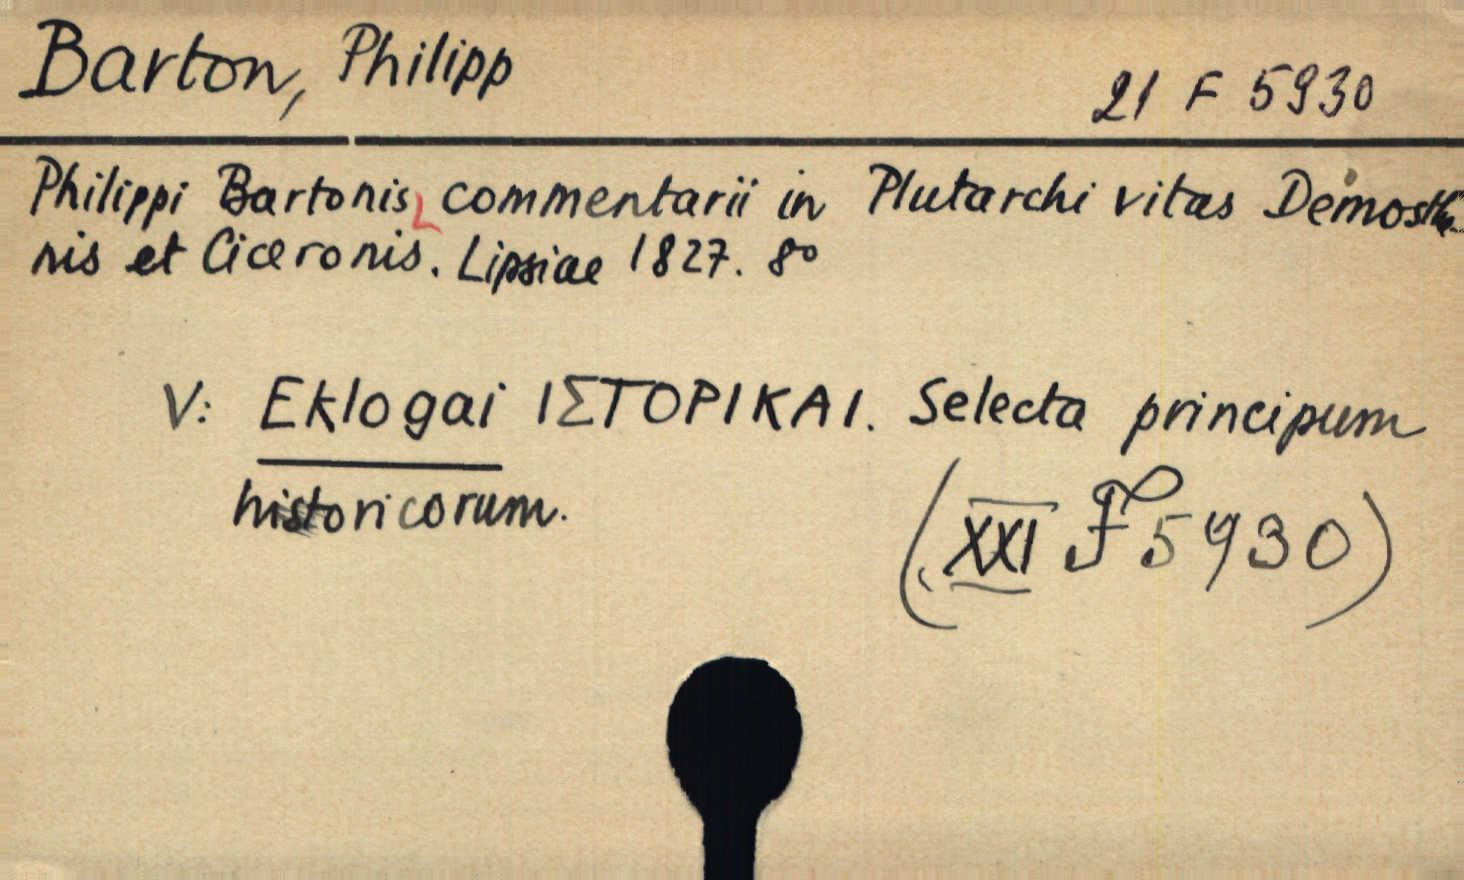 Barton, Philipp
21 F 5930
Philippi Bartonis commentarii in Plutarchi vitas Demosthe
nis et Ciceronis. Lipsiae 1827. 8°
V: Eklogai ΙΣΤΟΡΙΚΑΙ. Selecta principum
historicorum.
(XXI F 5930)